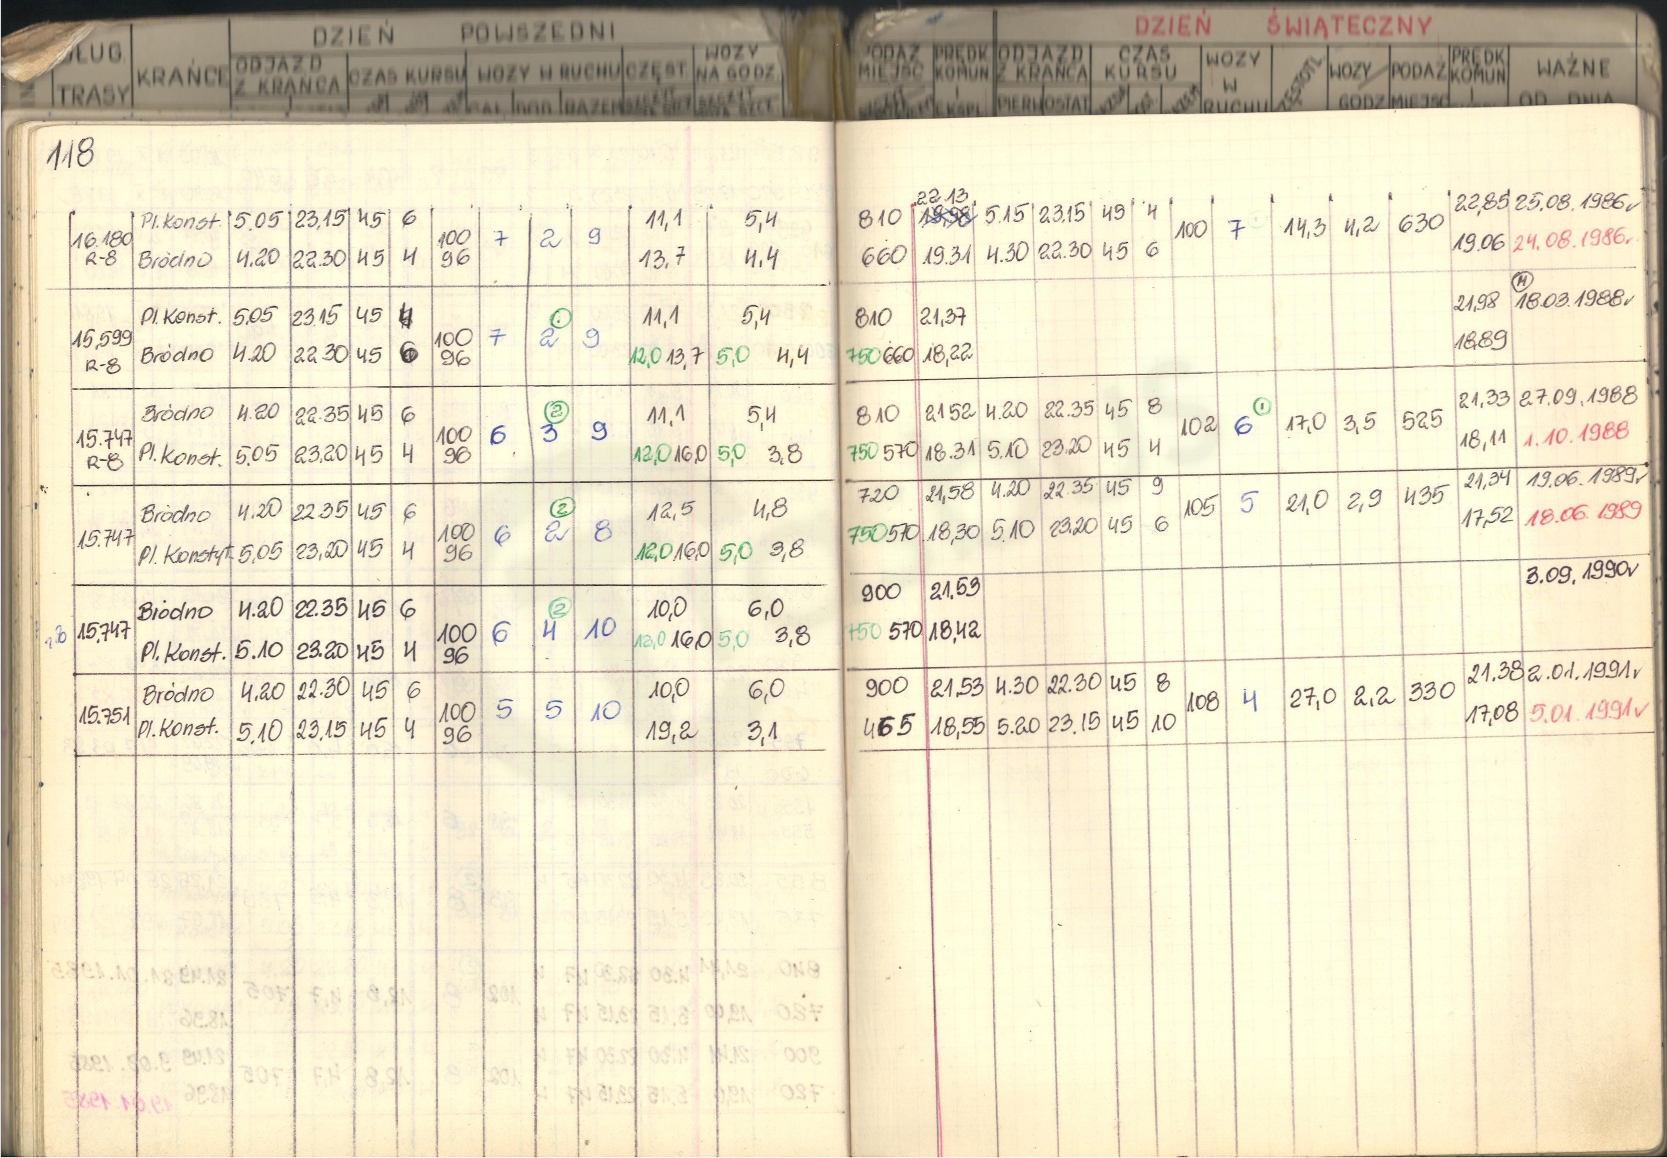 DZIEŃ POWSZEDNI
DZIEŃ ŚWIĄTECZNY
DŁUG. TRASY
KRAŃCE
ODJAZD Z KRAŃCA
CZAS KURSU
WOZY W RUCHU
CZĘST.
WOZY NA GODZ.
PODAŻ MIEJSC
PRĘDK KOMUN
ODJAZD Z KRAŃCA
CZAS KURSU
WOZY W RUCHU
WOZY GODZ
PODAŻ MIEJSC
PRĘDK KOMUN
WAŻNE OD DNIA
118
22.13
Pl. Konst. 5.05 23.15 45 6 11,1 5,4 810 5.15 23.15 45 4 22,85 25.08.1986
16.180 R-8 100 96 7 2 9 100 7 14,3 4,2 630
Bródno 4.20 22.30 45 4 13,7 4,4 660 19.31 4.30 22.30 45 6 19.06 24.08.1986
Pl. Konst. 5.05 23.15 45 4 11,1 5,4 810 21,37 21,98 18.03.1988
15,599 R-8 100 96 7 2 9
Bródno 4.20 22.30 45 6 12,0 13,7 5,0 4,4 750 660 18,22 18,89
Bródno 4.20 22.35 45 6 11,1 5,4 810 21.52 4.20 22.35 45 8 21,33 27.09.1988
15.747 R-8 100 96 6 3 2 9 102 6 1 17,0 3,5 525
Pl. Konst. 5.05 23.20 45 4 12,0 16,0 5,0 3,8 750 570 18.31 5.10 23.20 45 4 18,11 1.10.1988
Bródno 4.20 22.35 45 6 12,5 4,8 720 21,58 4.20 22.35 45 9 21,34 19.06.1989
15.747 100 96 6 2 2 8 105 5 21,0 2,9 435
Pl. Konstyt. 5.05 23.20 45 4 12,0 16,0 5,0 3,8 750 570 18,30 5.10 23.20 45 6 17,52 18.06.1989
Bródno 4.20 22.35 45 6 10,0 6,0 900 21.53 3.09.1990
15.747 100 96 6 4 2 10
Pl. Konst. 5.10 23.20 45 4 12,0 16,0 5,0 3,8 750 570 18,42
Bródno 4.20 22.30 45 6 10,0 6,0 900 21,53 4.30 22.30 45 8 21.38 2.01.1991
15.751 100 96 5 5 10 108 4 27,0 2,2 330
Pl. Konst. 5.10 23.15 45 4 19,2 3,1 465 18,55 5.20 23.15 45 10 17,08 5.01.1991